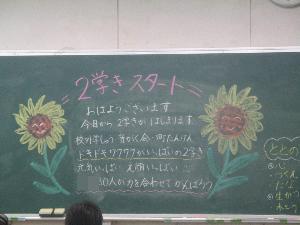 =2学き スタート=
おはようございます
今日から 2学きが はじまります
校外学しゅう 音がく会 町たんけん
ドキドキワクワクがいっぱいの2学き
元気いっぱい え顔いっぱい
30人が力を合わせて がんばろう
ととの